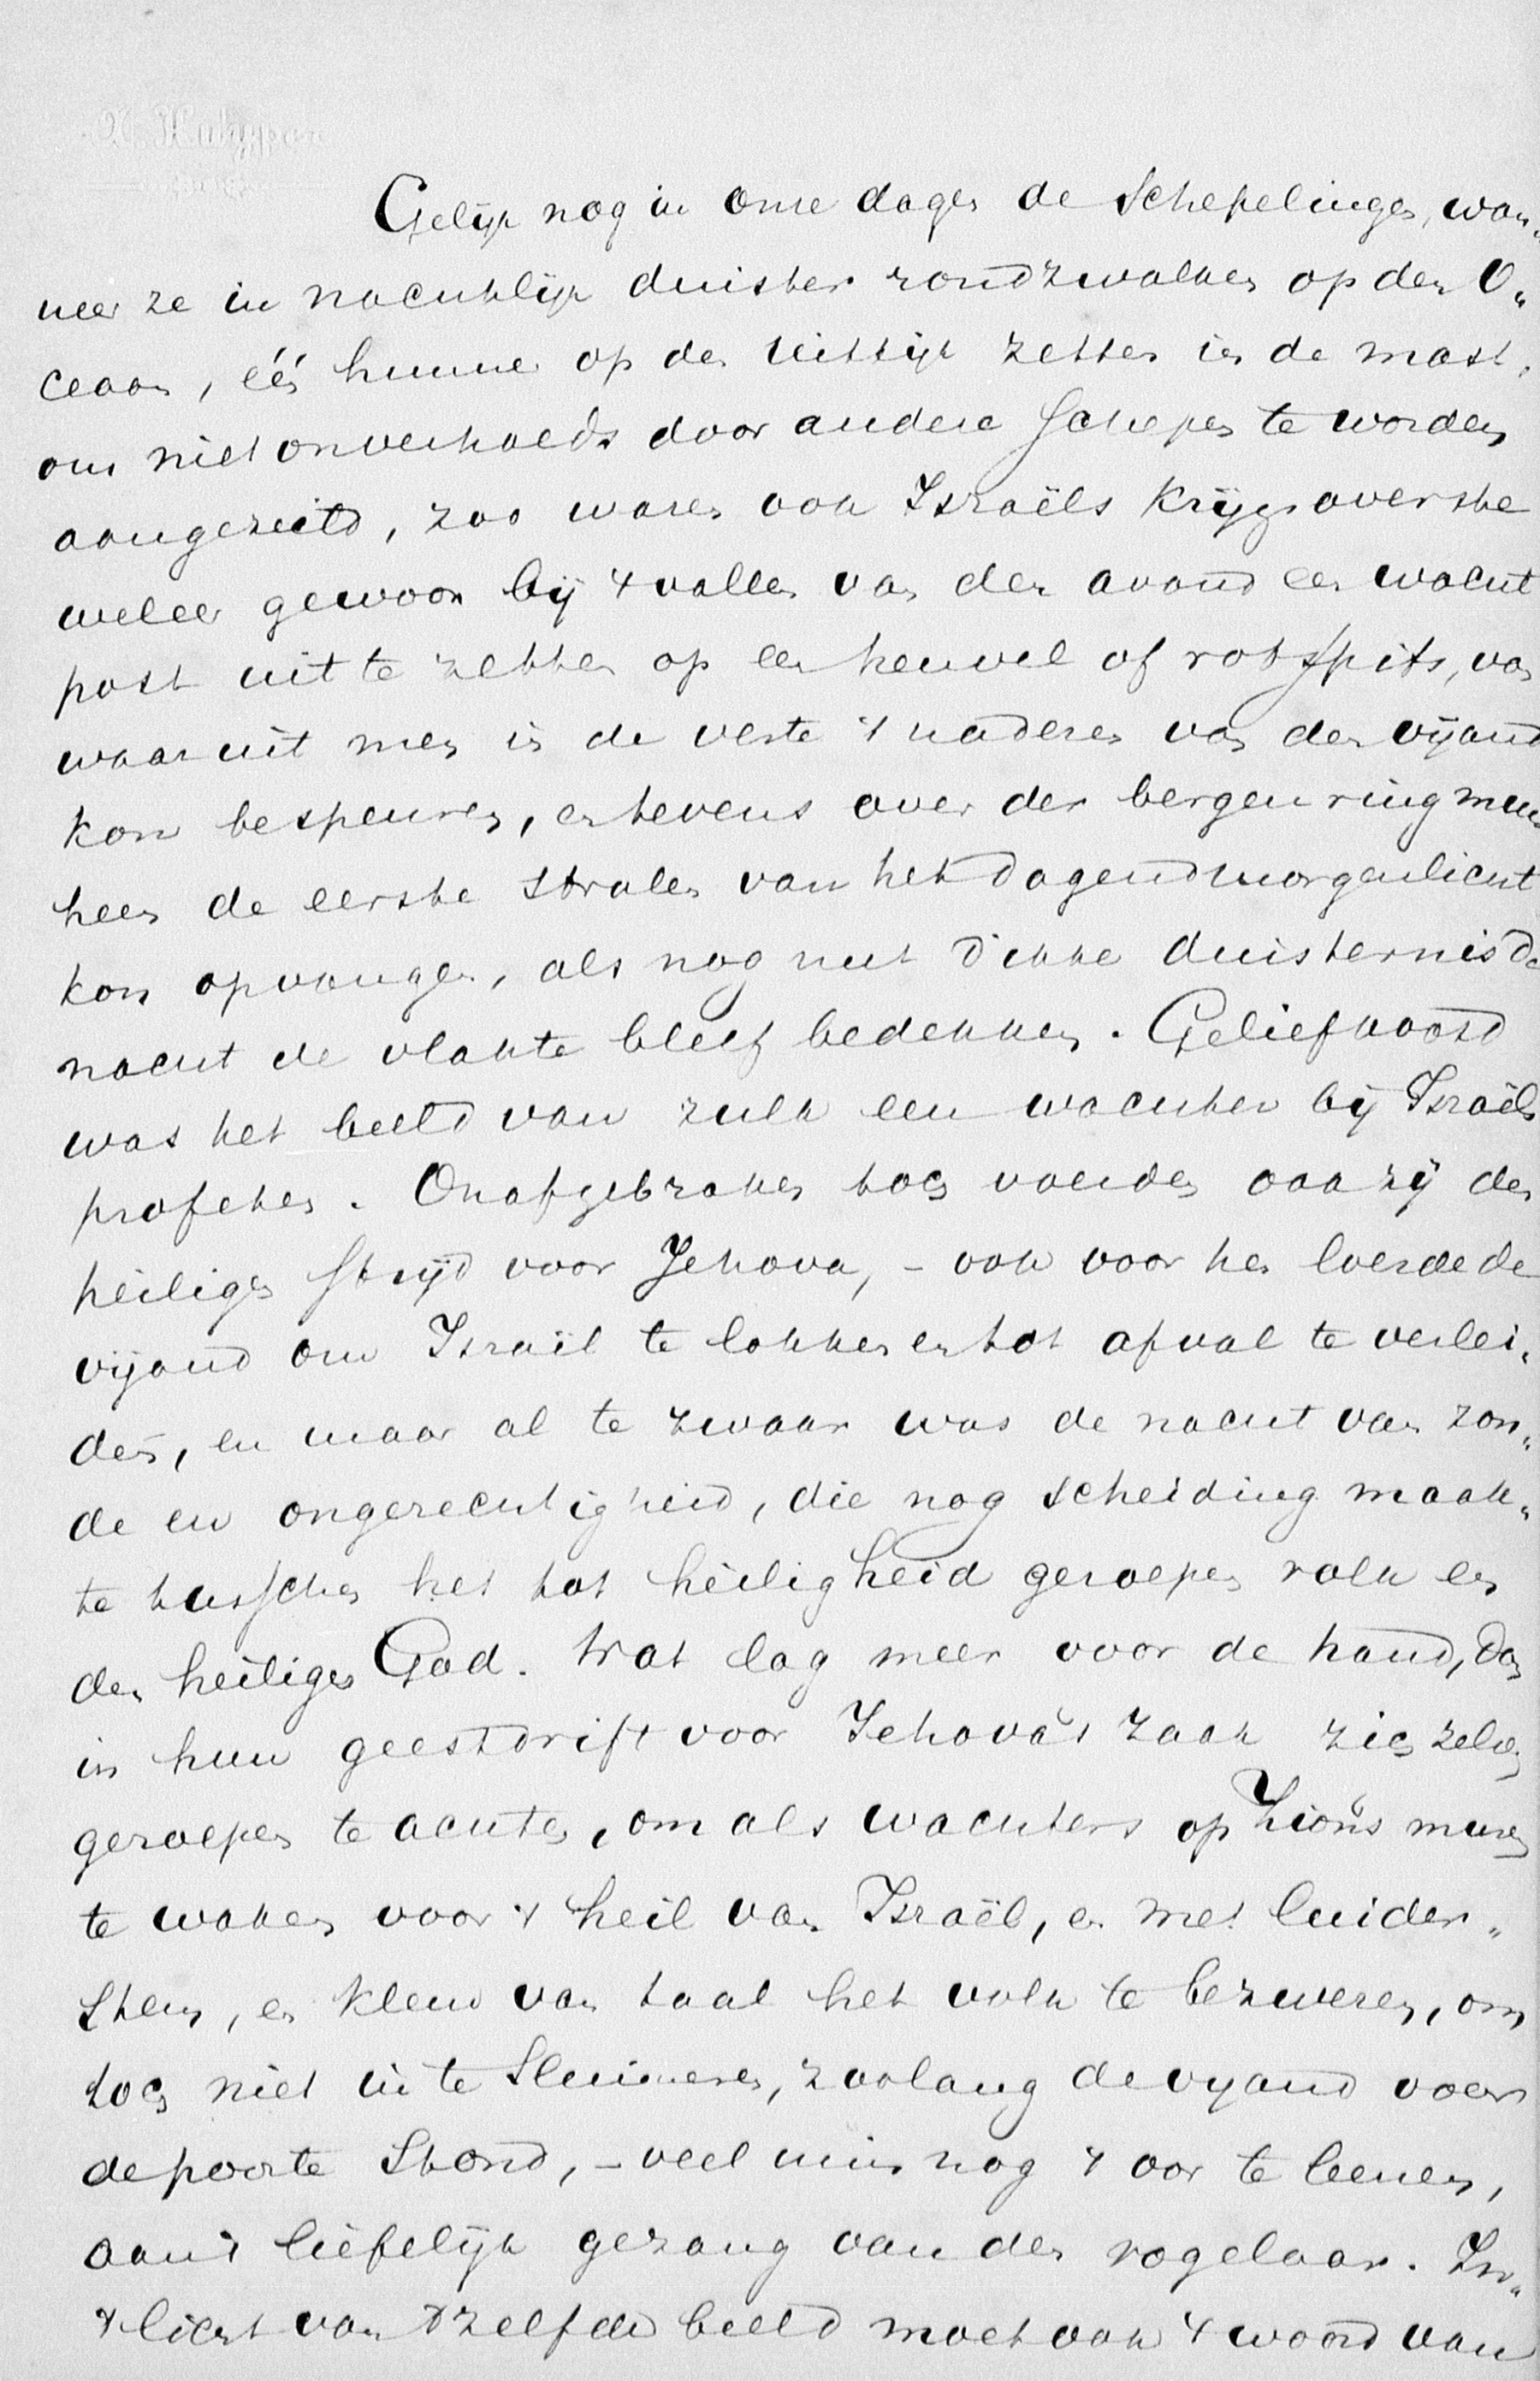 A. Kuyper
Gelijk nog in onze dagen de Schepelingen, wan„
neer ze in nachtlijk duister rondzwalken op den O„
ceaan, één hunner op den uitkijk zetten in de mast,
om niet onverhoeds door andere Schepen te worden
aangezeild, zoo waren ook Israëls Krijgsoverste
weleer gewoon bij 't vallen van den avond een wacht
post uit te zetten op een heuvel of rotsspits, van
waar uit men in de verte 't naderen van den vijand
kon bespeuren, en tevens over den bergenring
heen de eerste stralen van het dagend morgenlicht
kon opvangen, als nog met dikke duisternis de
nacht de vlakte bleef bedekken. Geliefkoosd
was het beeld van zulk een wachter bij Israëls
profeten. Onafgebroken toch voerden ook zij den
heiligen strijd voor Jehova, – ook voor hen loerde de
vijand om Israël te lokken en tot afval te verlei„
den, en maar al te zwaar was de nacht van zon„
de en ongerechtigheid, die nog scheiding maak„
te tusschen het tot heiligheid geroepen volk en
den heiligen God. Wat lag meer voor de hand, dan
in hun geestdrift voor Jehova's zaak zich zelven
geroepen te achten, om als wachters op Zion's muren
te waken voor 't heil van Israël, en met luider„
stem, en klem van taal het volk te bezweren, om
toch niet in te sluimeren, zoolang de vijand voor
de poorte stond, – veel min nog 't oor te leenen,
aan 't liefelijk gezang van den vogelaar. In„
't licht van 't zelfde beeld moet ook 't woord van